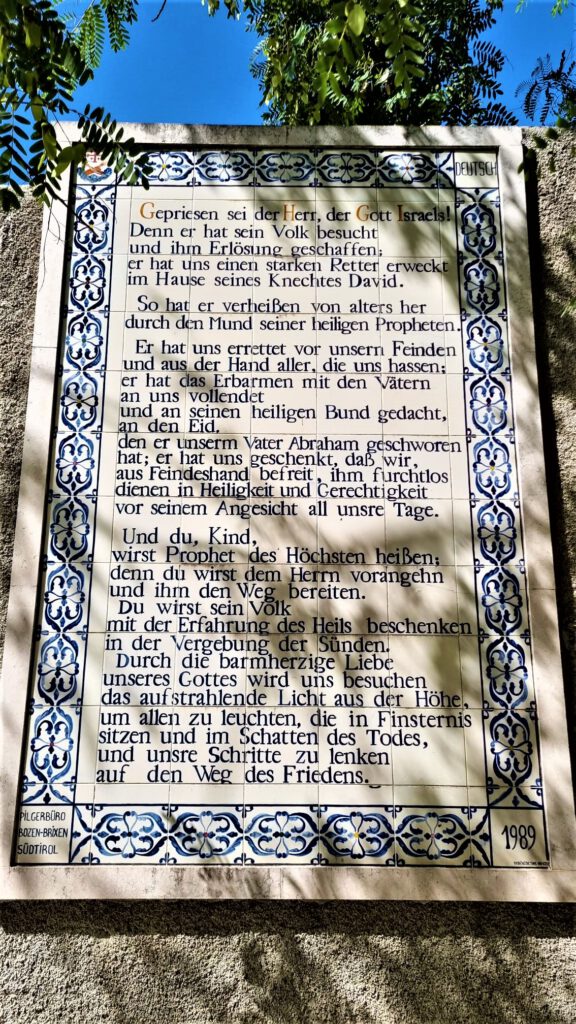 DEUTSCH
Gepriesen sei der Herr, der Gott Israels!
Denn er hat sein Volk besucht
und ihm Erlösung geschaffen;
er hat uns einen starken Retter erweckt
im Hause seines Knechtes David.
So hat er verheißen von alters her
durch den Mund seiner heiligen Propheten.
Er hat uns errettet vor unsern Feinden
und aus der Hand aller, die uns hassen;
er hat das Erbarmen mit den Vätern
an uns vollendet
und an seinen heiligen Bund gedacht,
an den Eid.
den er unserm Vater Abraham geschworen
hat; er hat uns geschenkt, daß wir,
aus Feindeshand befreit, ihm furchtlos
dienen in Heiligkeit und Gerechtigkeit
vor seinem Angesicht all unsre Tage.
Und du, Kind,
wirst Prophet des Höchsten heißen;
denn du wirst dem Herrn vorangehn
und ihm den Weg bereiten.
Du wirst sein Volk
mit der Erfahrung des Heils beschenken
in der Vergebung der Sünden.
Durch die barmherzige Liebe
unseres Gottes wird uns besuchen
das aufstrahlende Licht aus der Höhe,
um allen zu leuchten, die in Finsternis
sitzen und im Schatten des Todes,
und unsre Schritte zu lenken
auf den Weg des Friedens.
PILGERBÜRO
BOZEN-BRIXEN
SÜDTIROL
1989